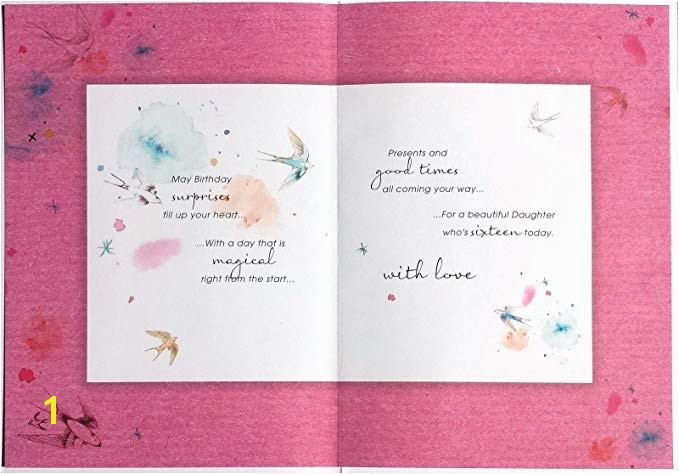 May Birthday
surprises
fill up your heart...
...With a day that is
magical
right from the start...
Presents and
good times
all coming your way...
...For a beautiful Daughter
who's sixteen today.
with love
1